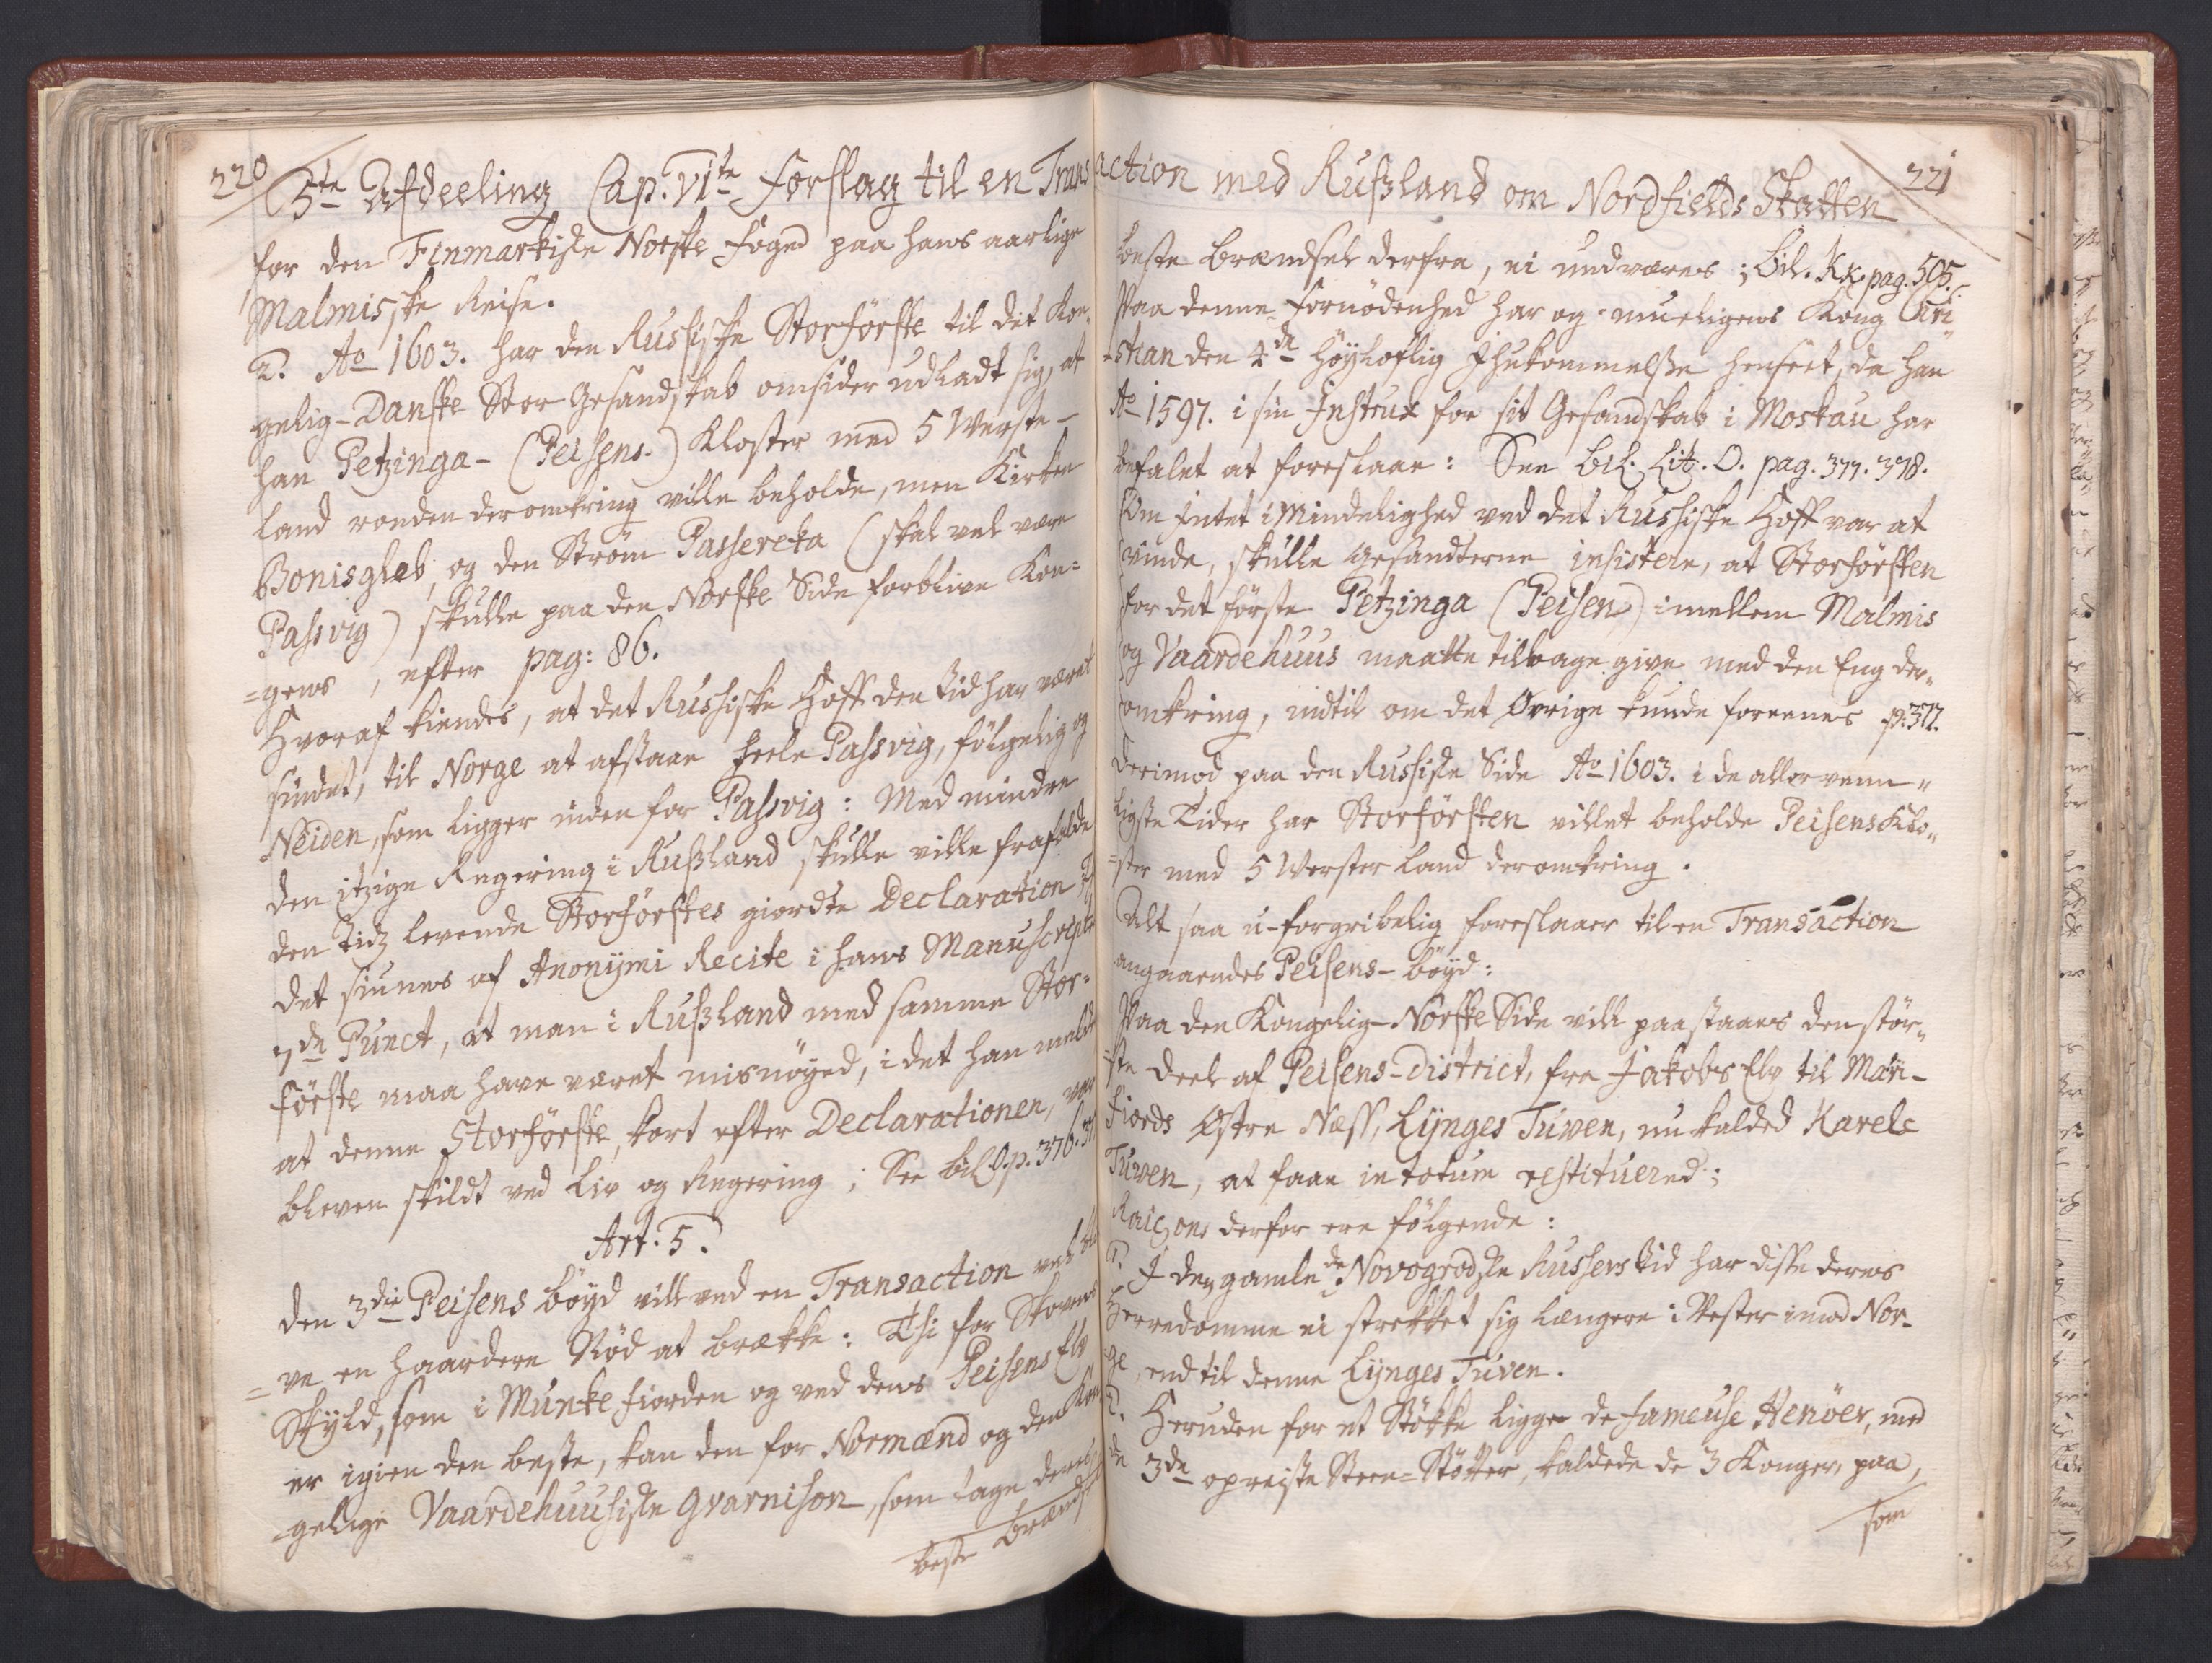 220
5te Afdeeling Cap. VIte Forslag til en Trans
for den Finmarkiske Norske Foged paa hans aarlige
Malmiske Reise.
2. Ao 1603. har den Russiske Storförste til det Kon-
gelig-Danske Stor Gesandskab omsider udladt sig, at
han Petzinga- (Peisens-) Kloster med 5 Werste-
Land runden deromkring ville beholde, men Kirken
Bonisgleb, og den Ström Passereka (skal vel være
Passvig) skulle paa den Norske Side forblive Kon=
=gens, efter pag: 86.
Hvoraf kiendes, at det Russiske Hoff den Tid har været
sindet, til Norge at afstaae heele Passvig, fölgelig og
Neiden, som ligger inden for Passvig: Med mindre
den itzige Regering i Rußland skulle ville frafalde
den Tidz levende Storförstes giordte Declaration
det siunes af Anonijmi Recite i hans Manuscripte
7de Punct, at man i Rußland med samme Stor=
förste maa have været misnöyed, i det han melder
at denne Storförste, kort efter Declarationen, var
bleven skildt ved Liv og Regering; See Bil. O. p. 376. 377
Art. 5.
Den 3die Peisens böyd vill ved en Transaction vel bli
=ve en haardere Nöd at brække: Thi for Skovens
Skyld, som i Munkefiorden og ved dens Peisens Elv
er igien den beste, kan den for Normænd og den Kon
gelige Vaardehuusiske Gvarnison, som tage deres
beste Brændsel
action med Rußland om Nordfields Skatten
221
beste Brændsel derfra, ei undværes; Bil. KK. pag. 505.
Paa denne Fornödenhed har og mueligens Kong Chri
=stian den 4de Höyloflig Ihukommelße henseet, da han
Ao 1597. i sin Instrux for sit Gesandskab i Moskau har
befalet at foreslaae: See Bil. Lit. O. pag. 377. 378.
Om Intet i Mindelighed ved det Russiske Hoff var at
vinde, skulle Gesandterne insistere, at Storförsten
for det förste Petzinga (Peisen) imellem Malmis
og Vaardehuus maatte tilbage give med den Eng der„
omkring, indtil om det Övrige kunde foreenes p. 377.
Derimod paa den Russiske Side Ao 1603. i de allervenn„
ligste Tider har Storförsten villet beholde Peisens Klo„
=ster med 5 Werster Land deromkring.
Alt saa u-forgribelig foreslaaer til en Transaction
angaaendes Peisens- böyd:
Paa den Kongelig-Norske Side vill paastaaes den stör„
=ste Deel af Peisens-District, fra Jakobs Elv til Mati-
Fiords Östre Næss, Lijnges Tuven, nu kalded Karele
Tuven, at faae in totum restituered:
Raisons derfor ere fölgende:
1. I den gamle de Novogrodske Russers tid har disse deres
Herredomme ei strekket sig længere i Vester imod Nor-
ge, end til denne Lijnges Tuven.
2. Heruden for et Stökke ligger de fameuse Henöer, med
de 3de opreiste Steen=Stötter, kaldede de 3 Konger, paa,
som